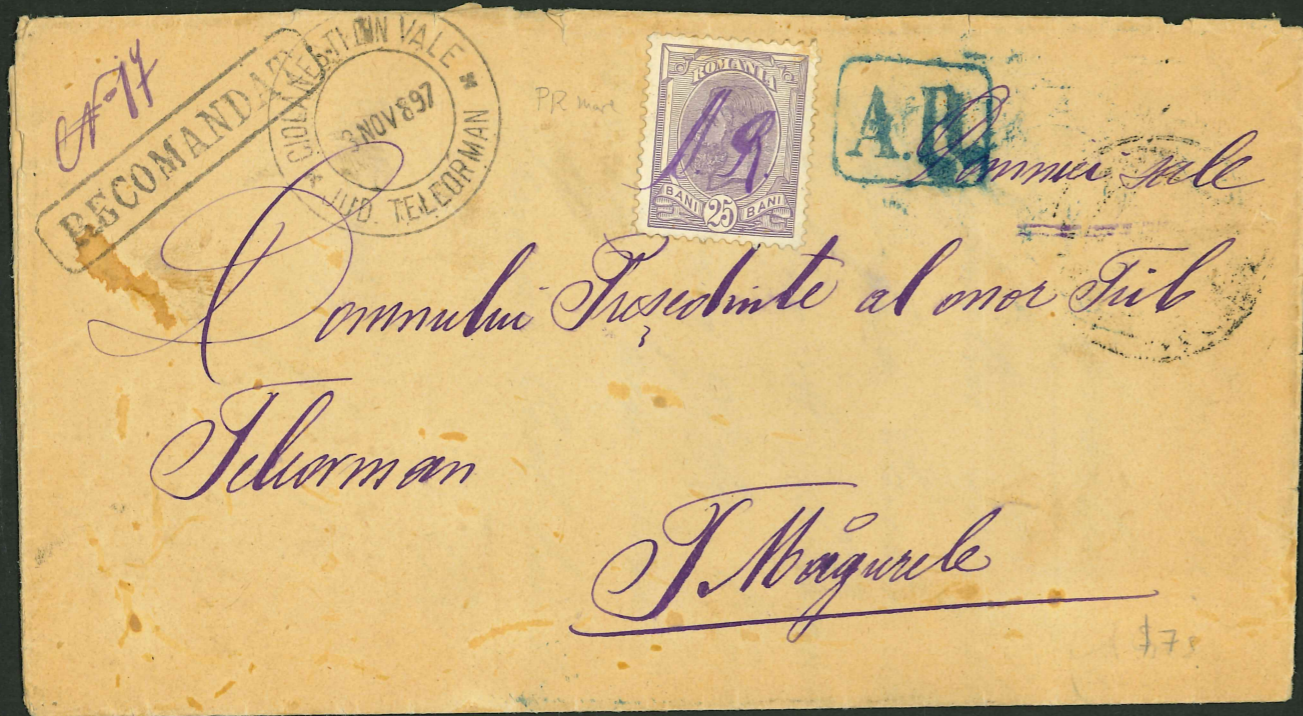 N-17
RECOMANDAT
CIOLANESTI DIN VALE
3 NOV 897
JUD. TELEORMAN
PR mare
ROMANIA
BANI 25 BANI
A.R.
Domnului Președinte al onor Trib
Teleorman
T. Măgurele